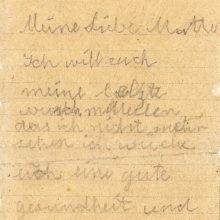 Meine Liebe Mutter
Ich will euch
meine letzte
mitteilen
das ich nicht mehr
ich
euch eine gute
gesundheit und